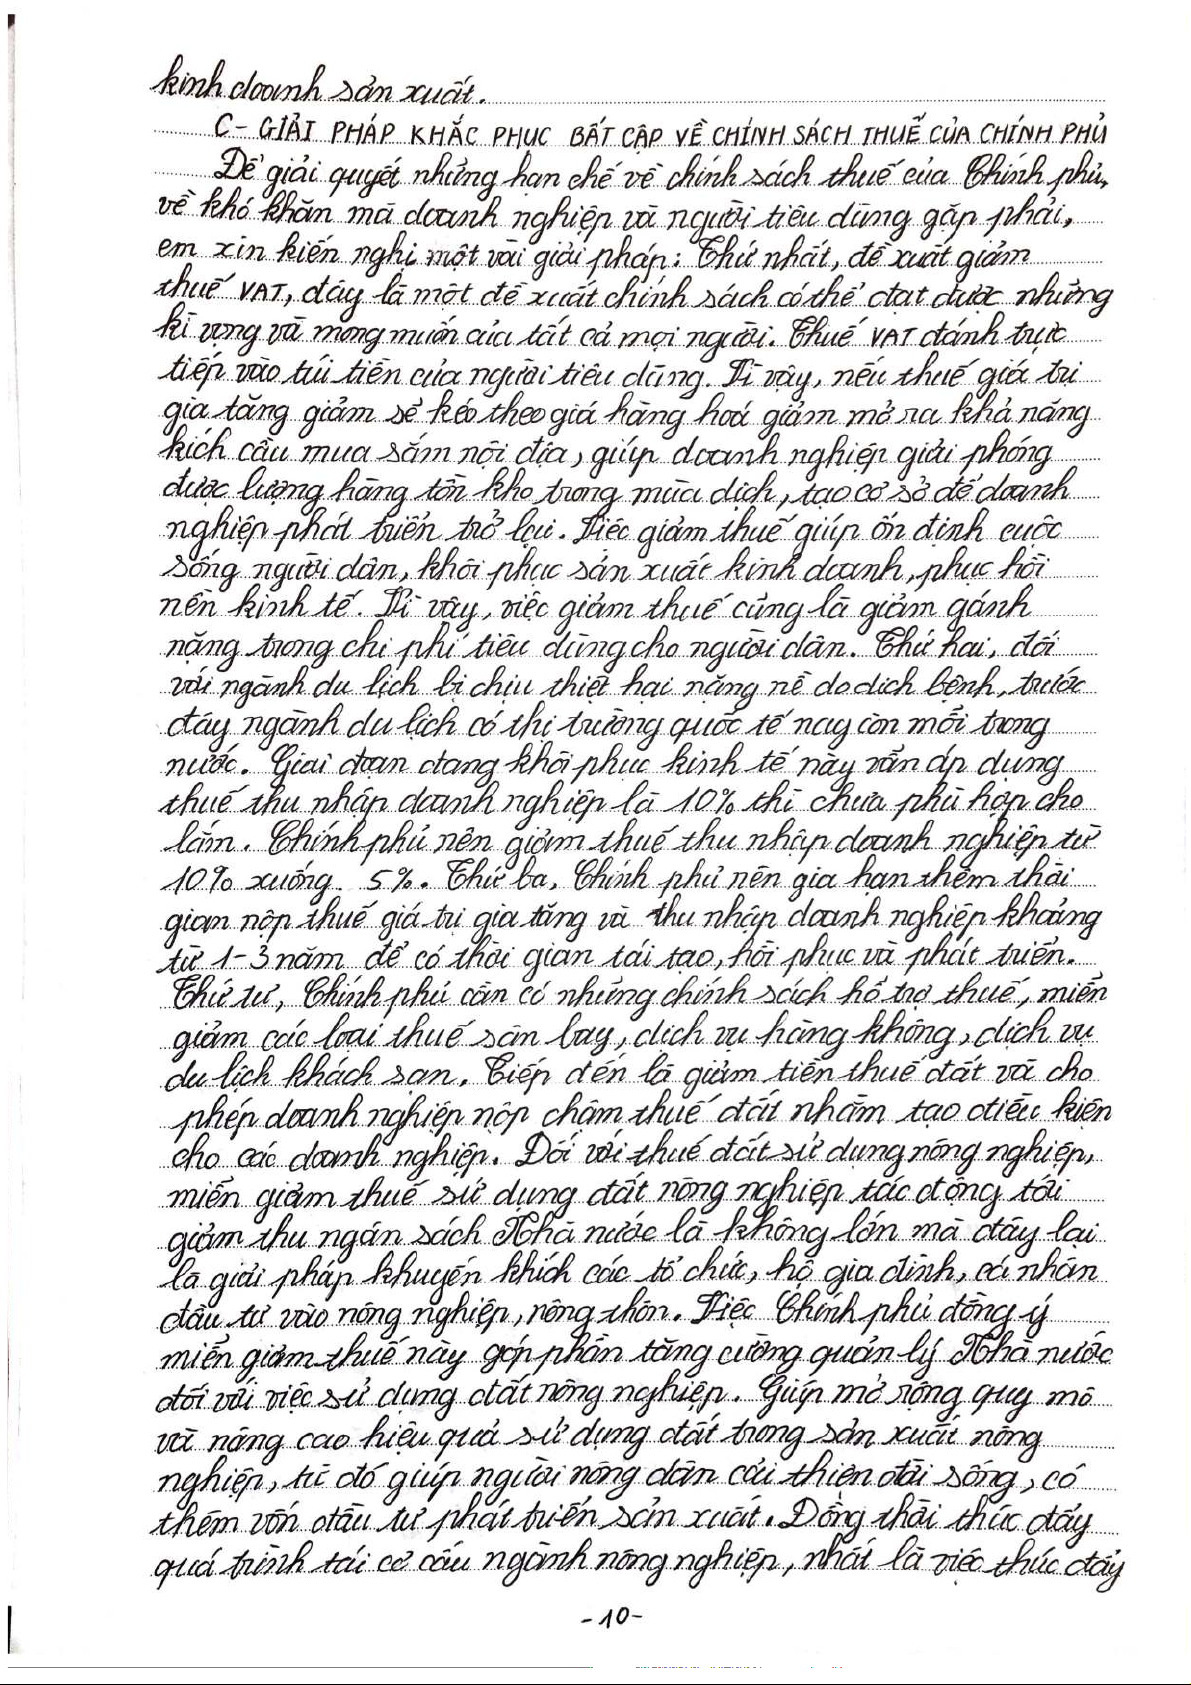 kinh doanh sản xuất.
C- GIẢI PHÁP KHẮC PHỤC BẤT CẬP VỀ CHÍNH SÁCH THUẾ CỦA CHÍNH PHỦ
Để giải quyết những hạn chế về chính sách thuế của Chính phủ,
về khó khăn mà doanh nghiệp và người tiêu dùng gặp phải,
em xin kiến nghị một vài giải pháp: Thứ nhất, đề xuất giảm
thuế VAT, đây là một đề xuất chính sách có thể đạt được những
kì vọng và mong muốn của tất cả mọi người. Thuế VAT đánh trực
tiếp vào túi tiền của người tiêu dùng. Vì vậy, nếu thuế giá trị
gia tăng giảm sẽ kéo theo giá hàng hoá giảm mở ra khả năng
kích cầu mua sắm nội địa, giúp doanh nghiệp giải phóng
được lượng hàng tồn kho trong mùa dịch, tạo cơ sở để doanh
nghiệp phát triển trở lại. Việc giảm thuế giúp ổn định cuộc
sống người dân, khôi phục sản xuất kinh doanh, phục hồi
nền kinh tế. Vì vậy, việc giảm thuế cũng là giảm gánh
nặng trong chi phí tiêu dùng cho người dân. Thứ hai, đối
với ngành du lịch bị chịu thiệt hại nặng nề do dịch bệnh, trước
đây ngành du lịch có thị trường quốc tế nay còn mỗi trong
nước. Giai đoạn đang khôi phục kinh tế này vẫn áp dụng
thuế thu nhập doanh nghiệp là 10% thì chưa phù hợp cho
lắm. Chính phủ nên giảm thuế thu nhập doanh nghiệp từ
10% xuống 5%. Thứ ba, Chính phủ nên gia hạn thêm thời
gian nộp thuế giá trị gia tăng và thu nhập doanh nghiệp khoảng
từ 1-3 năm để có thời gian tái tạo, hồi phục và phát triển.
Thứ tư, Chính phủ cần có những chính sách hỗ trợ thuế, miễn
giảm các loại thuế sân bay, dịch vụ hàng không, dịch vụ
du lịch khách sạn. Tiếp đến là giảm tiền thuế đất và cho
phép doanh nghiệp nộp chậm thuế đất nhằm tạo điều kiện
cho các doanh nghiệp. Đối với thuế đất sử dụng nông nghiệp,
miễn giảm thuế sử dụng đất nông nghiệp tác động tới
giảm thu ngân sách Nhà nước là không lớn mà đây lại
là giải pháp khuyến khích các tổ chức, hộ gia đình, cá nhân
đầu tư vào nông nghiệp, nông thôn. Việc Chính phủ đồng ý
miễn giảm thuế này góp phần tăng cường quản lý Nhà nước
đối với việc sử dụng đất nông nghiệp. Giúp mở rộng quy mô
và nâng cao hiệu quả sử dụng đất trong sản xuất nông
nghiệp, từ đó giúp người nông dân cải thiện đời sống, có
thêm vốn đầu tư phát triển sản xuất. Đồng thời thúc đẩy
quá trình tái cơ cấu ngành nông nghiệp, nhất là việc thúc đẩy
-10-